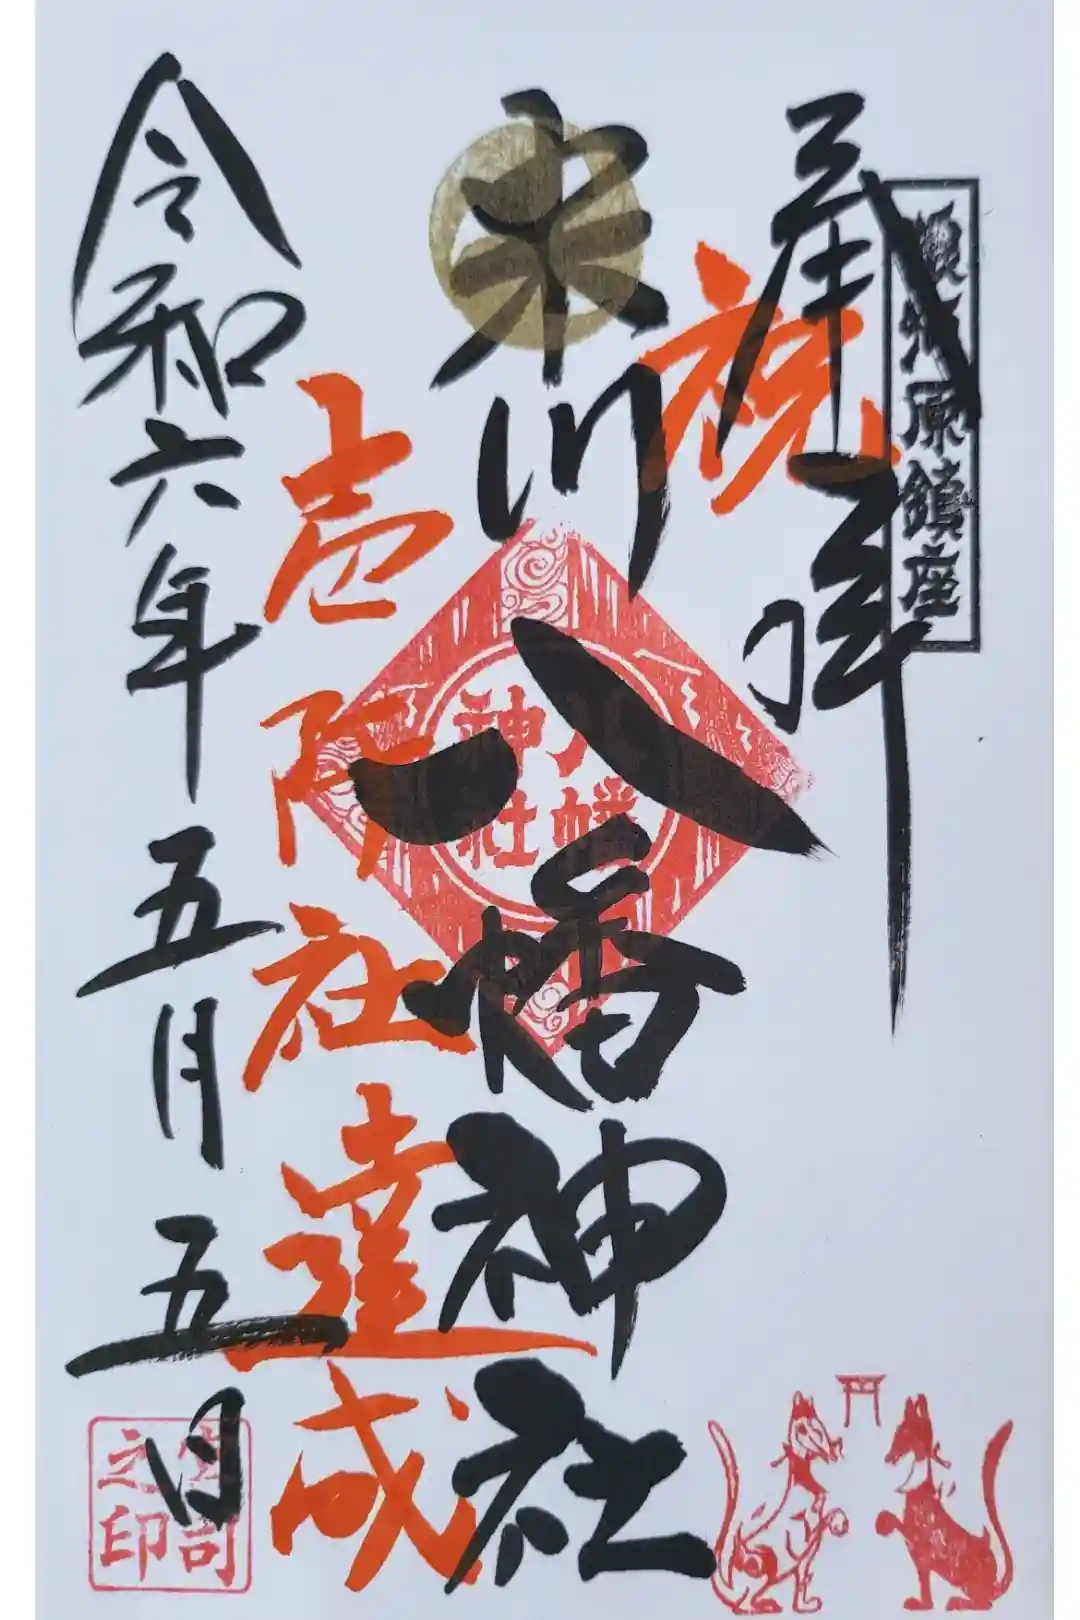 奉拝
原鎮座
祝
米川八幡神社
八幡
神社
壱阡社達成
令和六年五月五日
宮司
之印